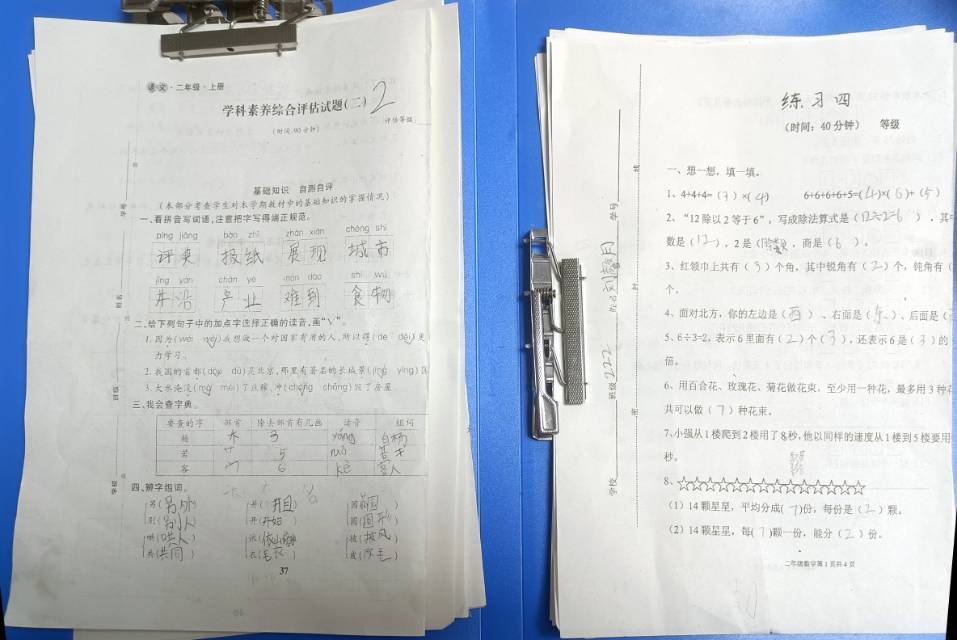 语文·二年级·上册
学科素养综合评估试题(三) 2
(时间:90分钟) 评估等级:
基础知识 自测自评
(本部分考查学生对本学期教材中的基础知识的掌握情况)
一、看拼音写词语,注意把字写得端正规范。
píng jiǎng bào zhǐ zhǎn xiàn chéng shì
评奖 报纸 展现 城市
jǐng yán chǎn yè nán dào shí wù
井沿 产业 难到 食物
二、给下列句子中的加点字选择正确的读音,画“√”。
1.因为(wéi wèi)我想做一个对国家有用的人,所以得(de děi)更
力学习。
2.我国的首都(dōu dū)是北京,那里有著名的长城景(jǐng yǐng)区
3.大水淹没(mò méi)了庄稼,冲(chōng chòng)毁了房屋
三、我会查字典。
要查的字 部首 除去部首有几画 读音 组词
杨 木 3 yáng 白杨
若 艹 5 ruò
客 宀 6 kè 客人
四、辨字组词。
另(另外) 井(井目) 园(
别(别人) 开(开始) 圆(圆形)
哄(哄人) 依(依山) 披(披风)
共(共同) 衣(毛衣) 皮(皮毛)
37
学号
姓名
班级
学校
练习四
(时间:40分钟) 等级
一、想一想,填一填。
1、4+4+4=(3)×(4) 6+6+6+6+5=(4)×(6)+(5)
2、“12除以2等于6”,写成除法算式是(12÷2=6),其中
数是(12),2是(除数),商是(6)。
3、红领巾上共有(3)个角,其中锐角有(2)个,钝角有(
个。
4、面对北方,你的左边是(西)、右面是(东)、后面是(
5、6÷3=2,表示6里面有(2)个(3),还表示6是(3)的
倍。
6、用百合花、玫瑰花、菊花做花束,至少用一种花,最多用3种花
共可以做(7)种花束。
7、小强从1楼爬到2楼用了8秒,他以同样的速度从1楼到5楼要用
秒。
8、☆☆☆☆☆☆☆☆☆☆☆☆☆☆
(1)14颗星星,平均分成(7)份,每份是(2)颗。
(2)14颗星星,每(7)颗一份,能分(2)份。
二年级数学第1页共4页
学号
班级 222
学校
线
封
密